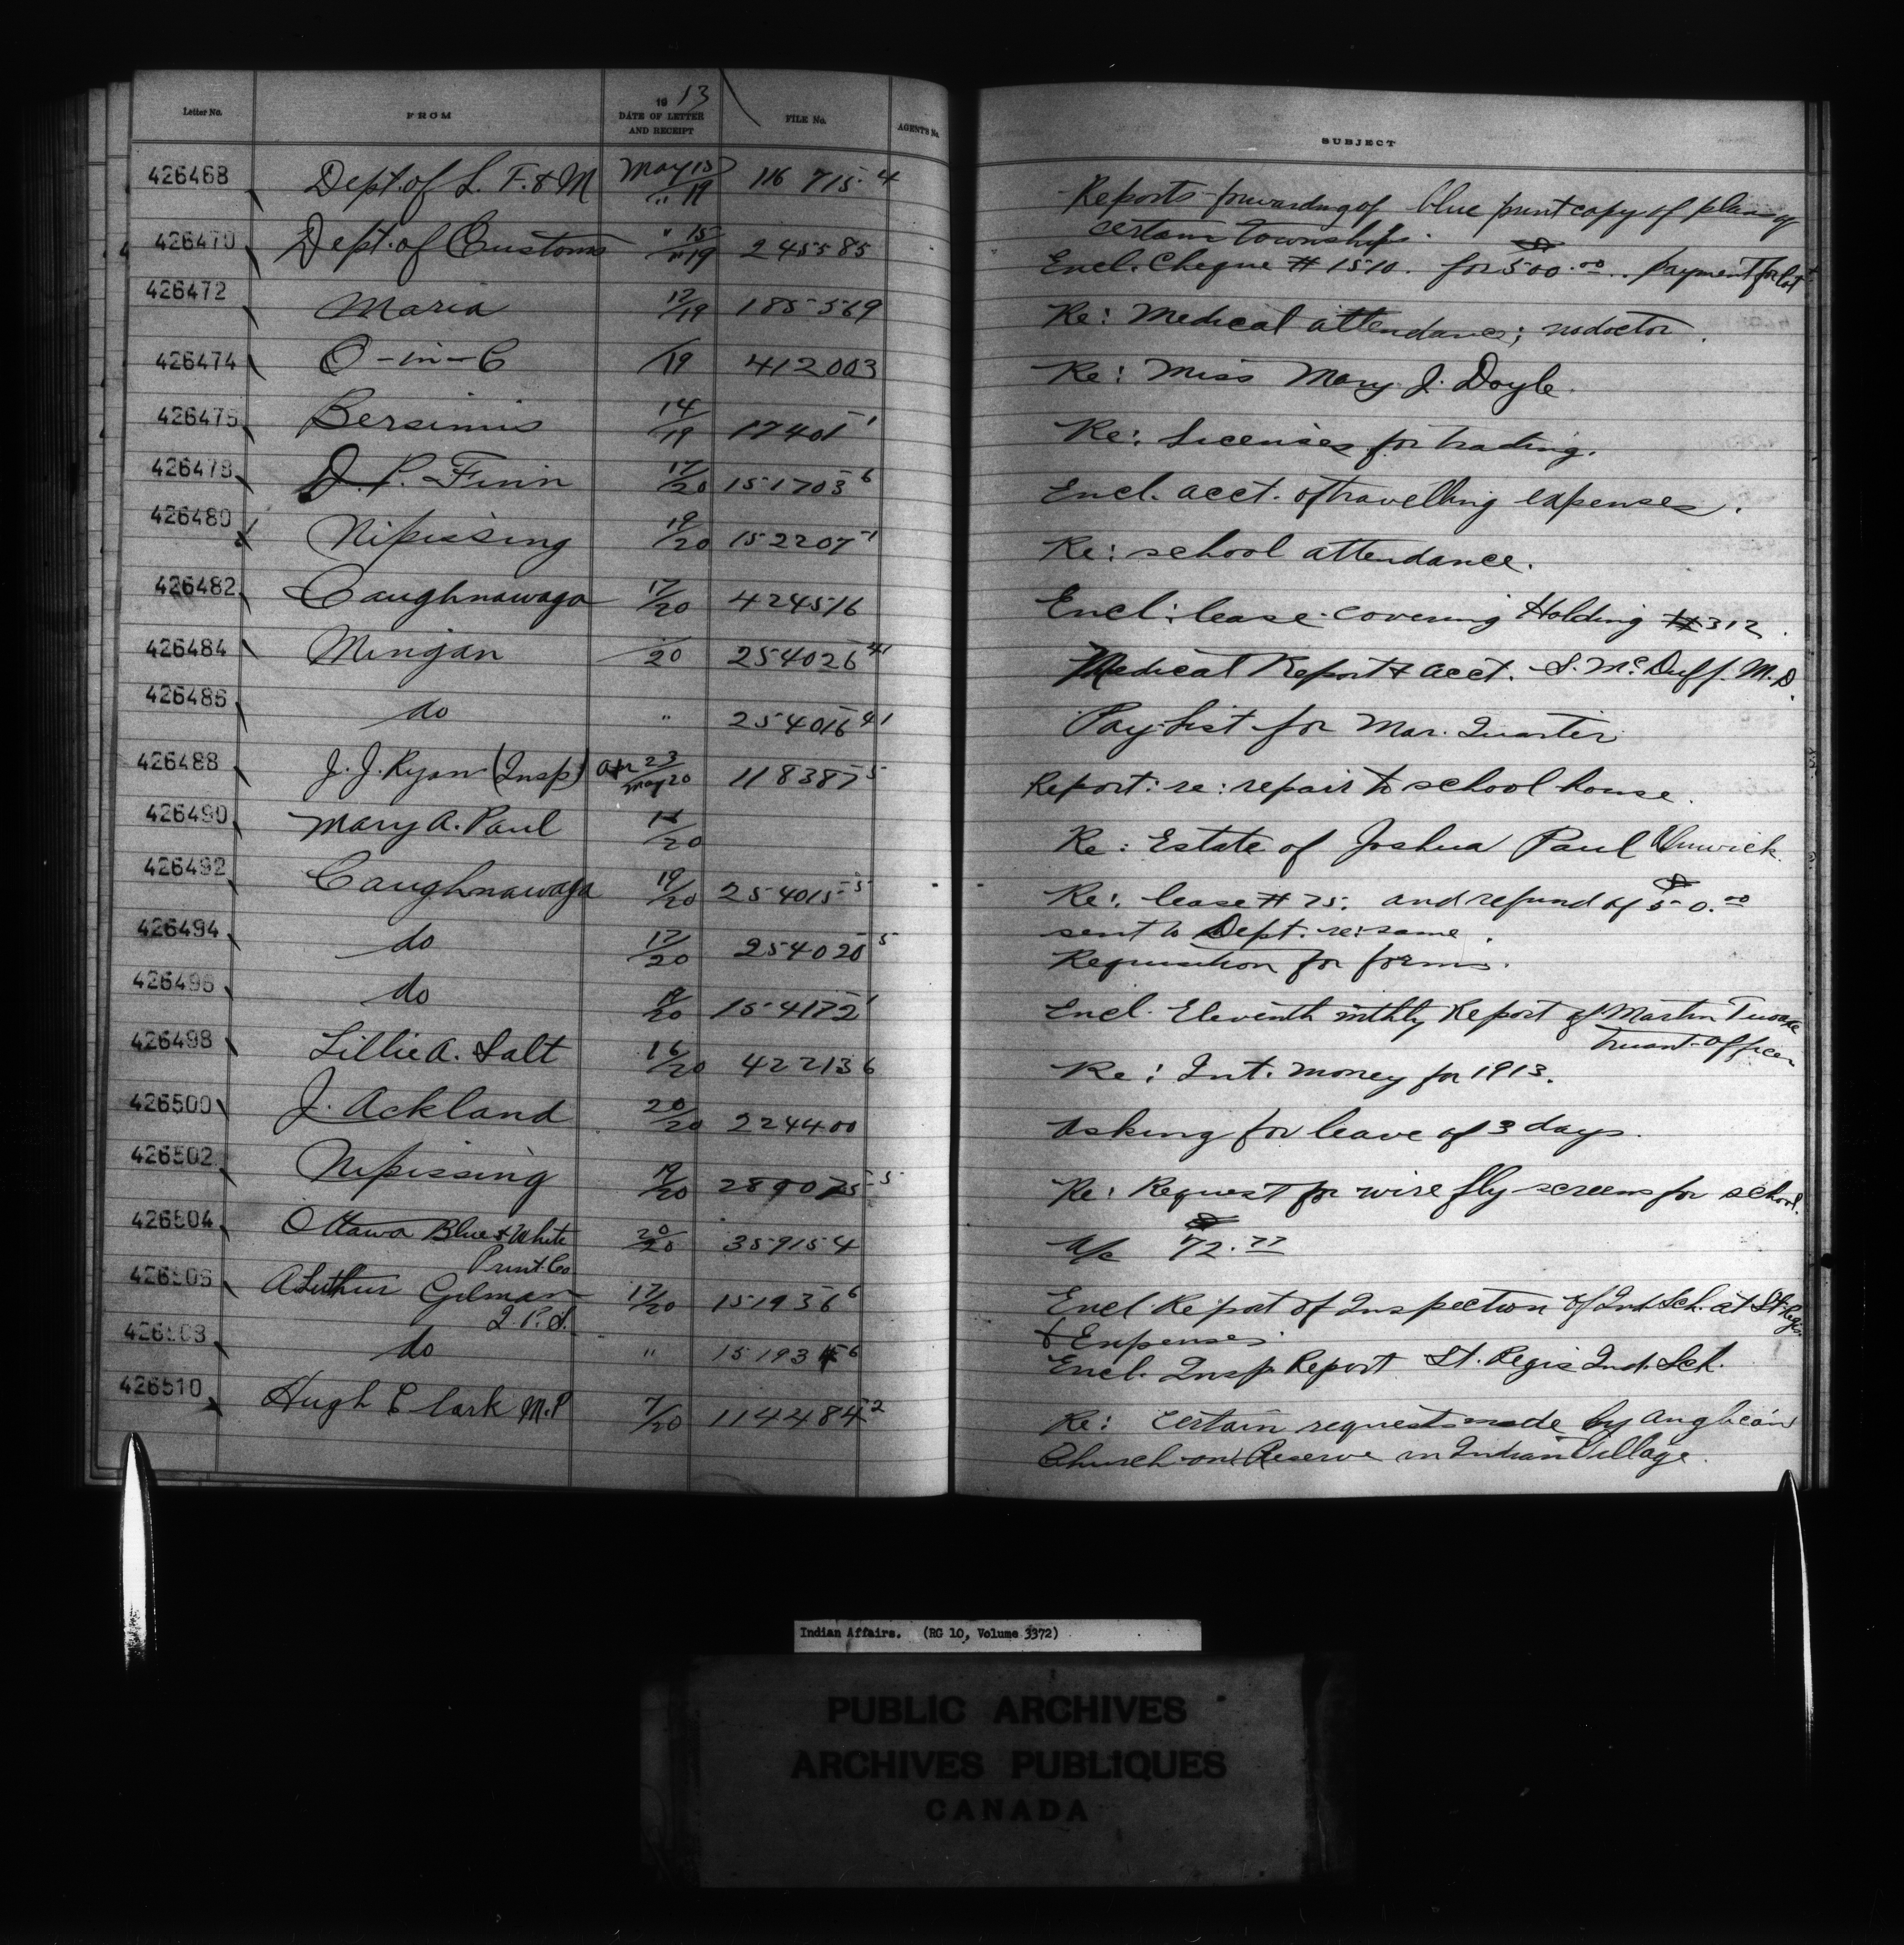 Letter No. FROM 1913 DATE OF LETTER AND RECEIPT FILE No. AGENT'S No. SUBJECT
426468 Dept. of L. F. & M May 15/" 19 116 715-4 Reports forwarding of blue print copy of plans of
certain townships.
426470 Dept. of Customs " 15/" 19 245585 Encl. Cheque # 1510. for $500.00. payment for lot
426472 Maria 17/19 185569 Re: Medical attendance; no doctor.
426474 O-in-C /19 412003 Re: Miss Mary J. Doyle.
426476 Bersimis 14/19 17401-1 Re: Licenses for trading.
426478 D. P. Finn 17/20 151703-6 Encl. acct. of travelling expenses.
426480 Nipissing 19/20 152207-1 Re: school attendance.
426482 Caughnawaga 17/20 424516 Encl: lease covering Holding #312.
426484 Mingan /20 254026-41 Medical Report & acct. S. McDuff. M.D.
426486 do " 254016-41 Pay-list for Mar. Quarter
426488 J. J. Ryan (Insp) Apr 23/May 20 118387-5 Report: re: repair to school house.
426490 Mary A. Paul /20 Re: Estate of Joshua Paul Alnwick.
426492 Caughnawaga 19/20 254015-5 Re: lease #75. and refund of $50.00
sent to Dept. re: same.
426494 do 17/20 254020-5 Requisition for forms.
426496 do /20 154172-1 Encl. Eleventh mthly Report of Martin
Truant-Officer
426498 Lillie A. Salt 16/20 422136 Re: Int. money for 1913.
426500 J. Ackland 20/20 224400 Asking for leave of 3 days.
426502 Nipissing 19/20 289075-5 Re: Request for wire fly-screens for school.
426504 Ottawa Blue & White 20/20 359154 A/c $72.77
Print Co
426506 A Luther Gilman 17/20 151936-6 Encl Report of Inspection of Ind. Sch. at St. Regis
I. P. S. & Expenses.
426508 do " 151934-6 Encl. Insp. Report St. Regis Ind. Sch.
426510 Hugh Clark M.P 7/20 114484-2 Re: certain requests made by Anglican
Church on Reserve in Indian Village.
Indian Affairs. (RG 10, Volume 3372)
PUBLIC ARCHIVES
ARCHIVES PUBLIQUES
CANADA